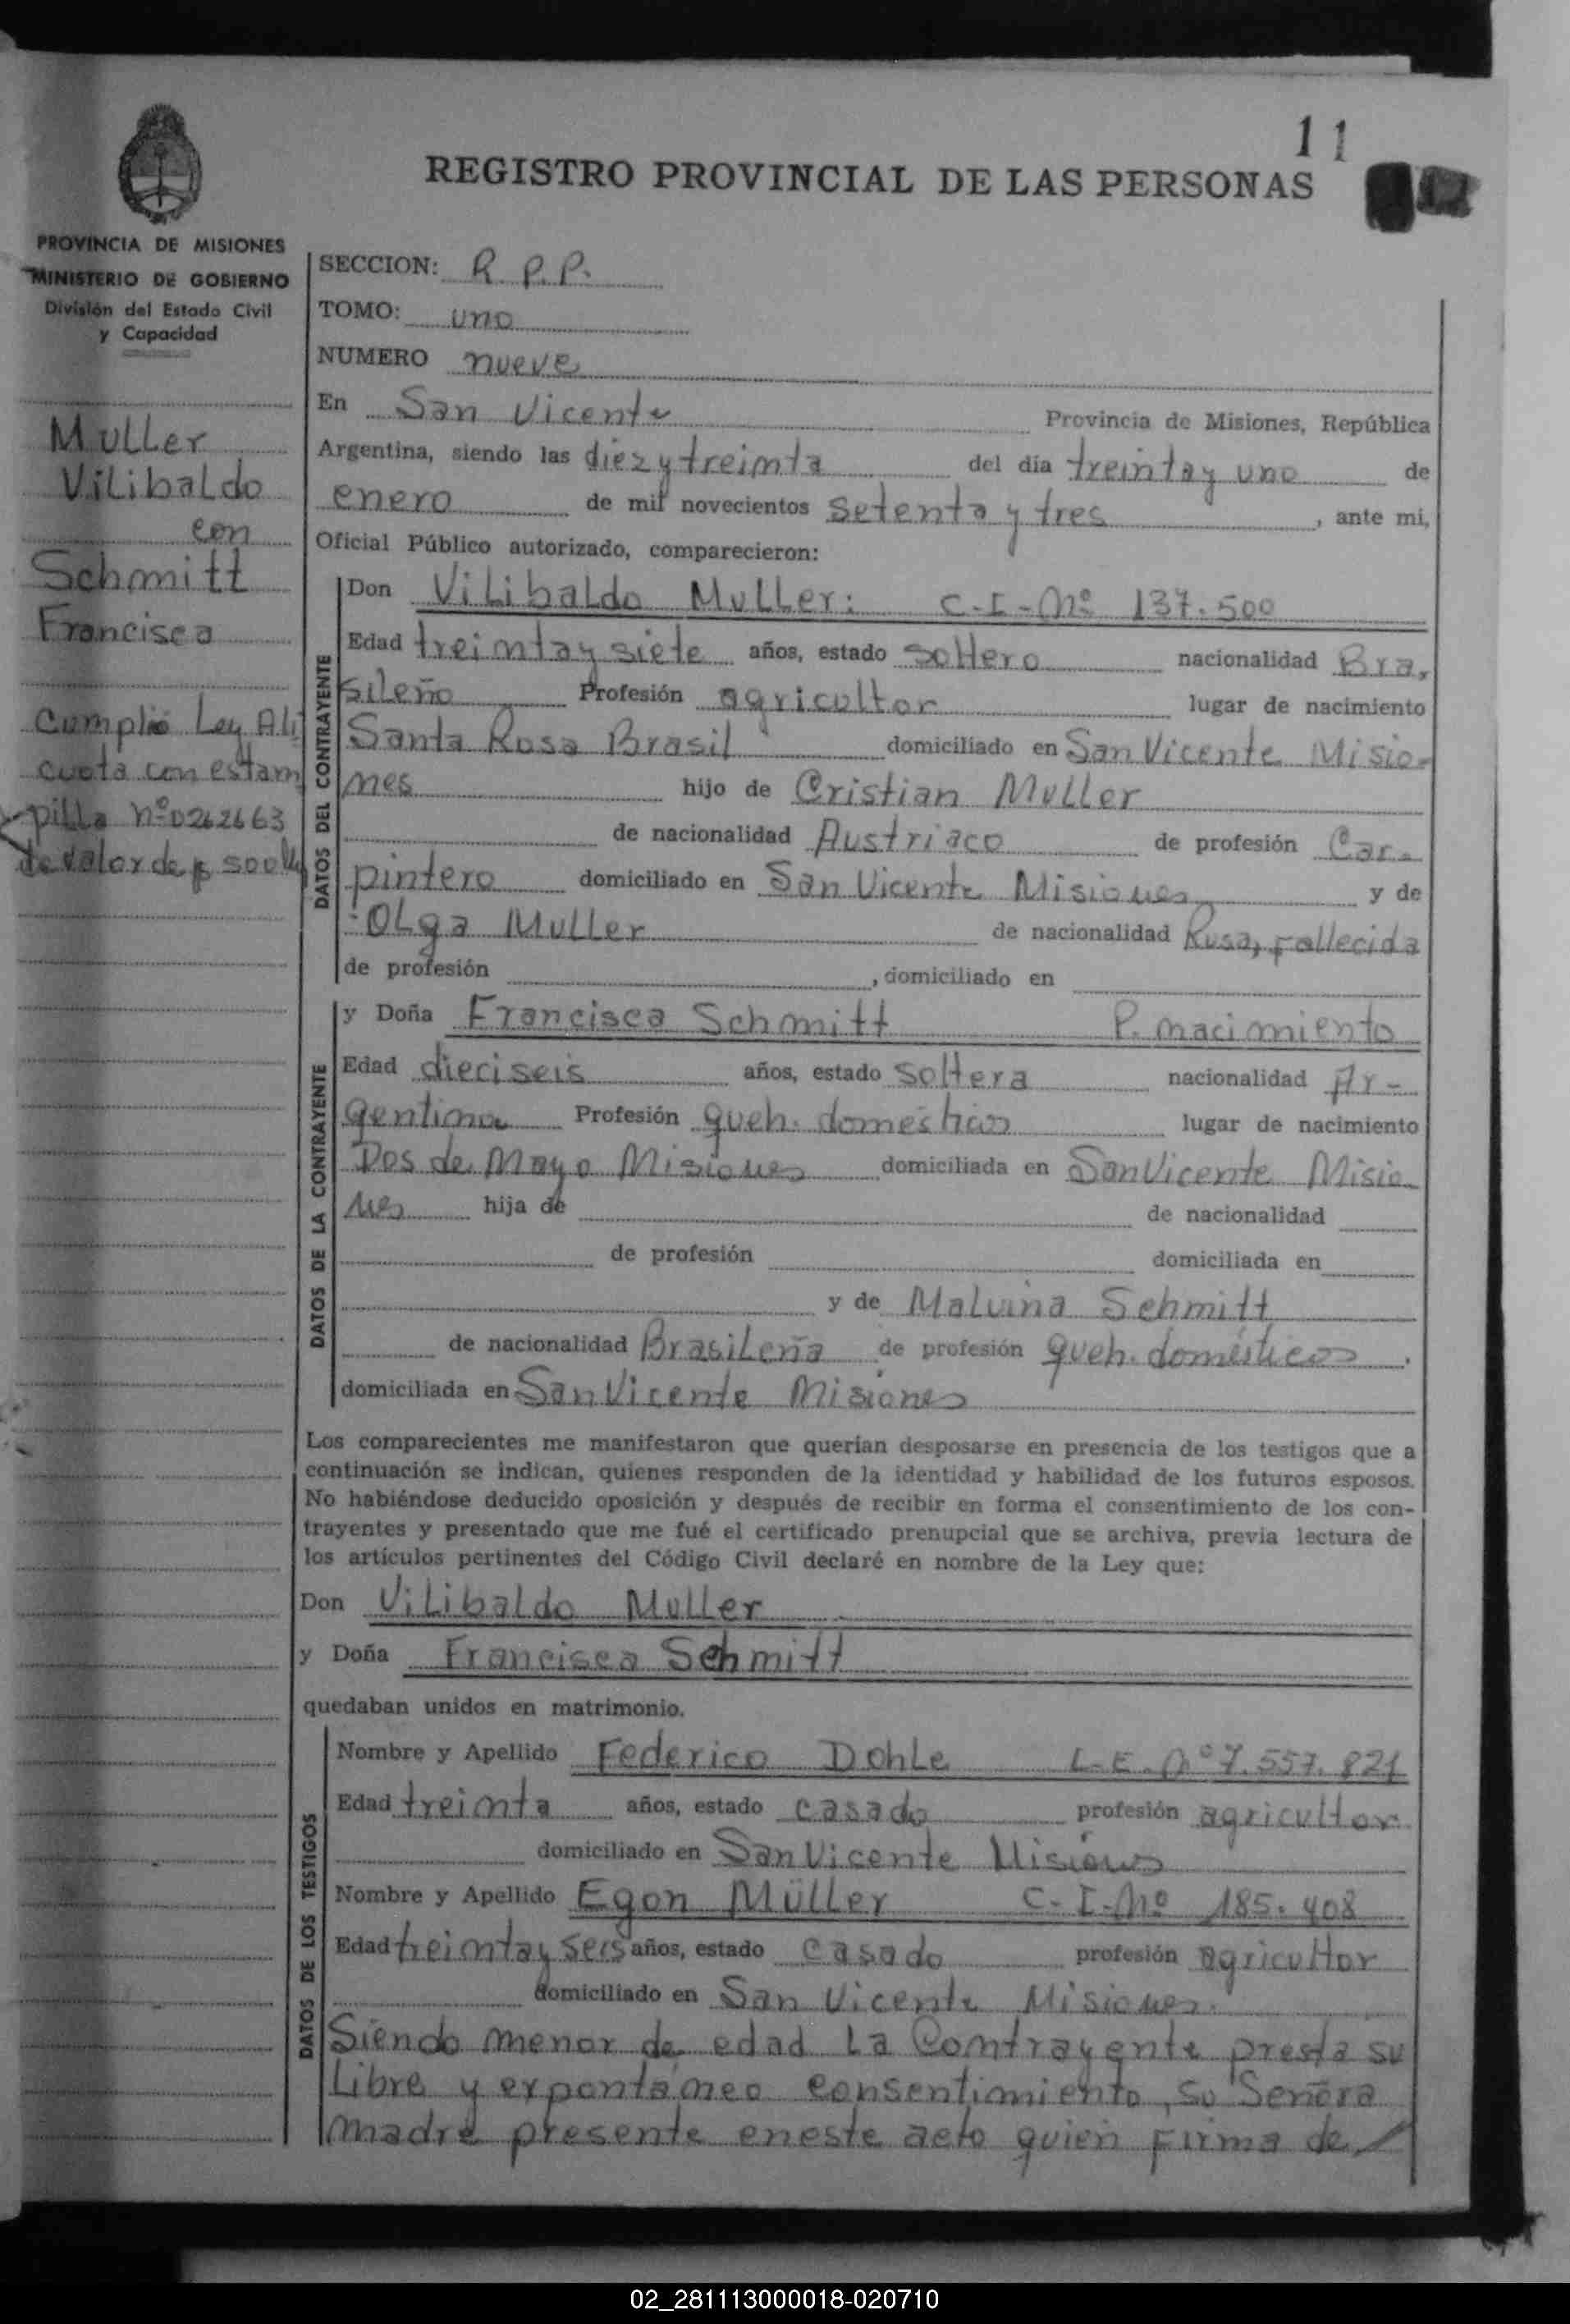 11
REGISTRO PROVINCIAL DE LAS PERSONAS
PROVINCIA DE MISIONES
MINISTERIO DE GOBIERNO
División del Estado Civil
y Capacidad
Muller
Vilibaldo
con
Schmitt
Francisca
Cumplió Ley Ali
cuota con estam
pilla nº 0262663
de valor de $ 500
SECCION: R.P.P.
TOMO: uno
NUMERO nueve
En San Vicente Provincia de Misiones, República
Argentina, siendo las diez y treinta del día treinta y uno de
enero de mil novecientos setenta y tres, ante mi,
Oficial Público autorizado, comparecieron:
DATOS DEL CONTRAYENTE
Don Vilibaldo Muller: C.I. Nº 137.500
Edad treinta y siete años, estado soltero nacionalidad Bra,
sileño Profesión agricultor lugar de nacimiento
Santa Rosa Brasil domiciliado en San Vicente Misio-
nes hijo de Cristian Muller
de nacionalidad Austriaco de profesión Car-
pintero domiciliado en San Vicente Misiones y de
Olga Muller de nacionalidad Rusa, fallecida
de profesión , domiciliado en
DATOS DE LA CONTRAYENTE
y Doña Francisca Schmitt P. nacimiento
Edad dieciseis años, estado soltera nacionalidad Ar-
gentina Profesión queh. domésticos lugar de nacimiento
Dos de Mayo Misiones domiciliada en San Vicente Misio-
nes hija de de nacionalidad
de profesión domiciliada en
y de Malvina Schmitt
de nacionalidad Brasileña de profesión queh. domésticos,
domiciliada en San Vicente Misiones
Los comparecientes me manifestaron que querían desposarse en presencia de los testigos que a
continuación se indican, quienes responden de la identidad y habilidad de los futuros esposos.
No habiéndose deducido oposición y después de recibir en forma el consentimiento de los con-
trayentes y presentado que me fué el certificado prenupcial que se archiva, previa lectura de
los artículos pertinentes del Código Civil declaré en nombre de la Ley que:
Don Vilibaldo Muller
y Doña Francisca Schmitt
quedaban unidos en matrimonio.
DATOS DE LOS TESTIGOS
Nombre y Apellido Federico Dohle L.E. Nº 7.557.821
Edad treinta años, estado casado profesión agricultor
domiciliado en San Vicente Misiones
Nombre y Apellido Egon Müller C.I. Nº 185.408
Edad treinta y seis años, estado casado profesión agricultor
domiciliado en San Vicente Misiones.
Siendo menor de edad la contrayente presta su
libre y expontáneo consentimiento, su Señora
madre presente en este acto quien firma de
02_281113000018-020710